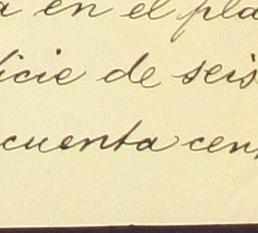 a en el pla
icie de seis
cuenta cen